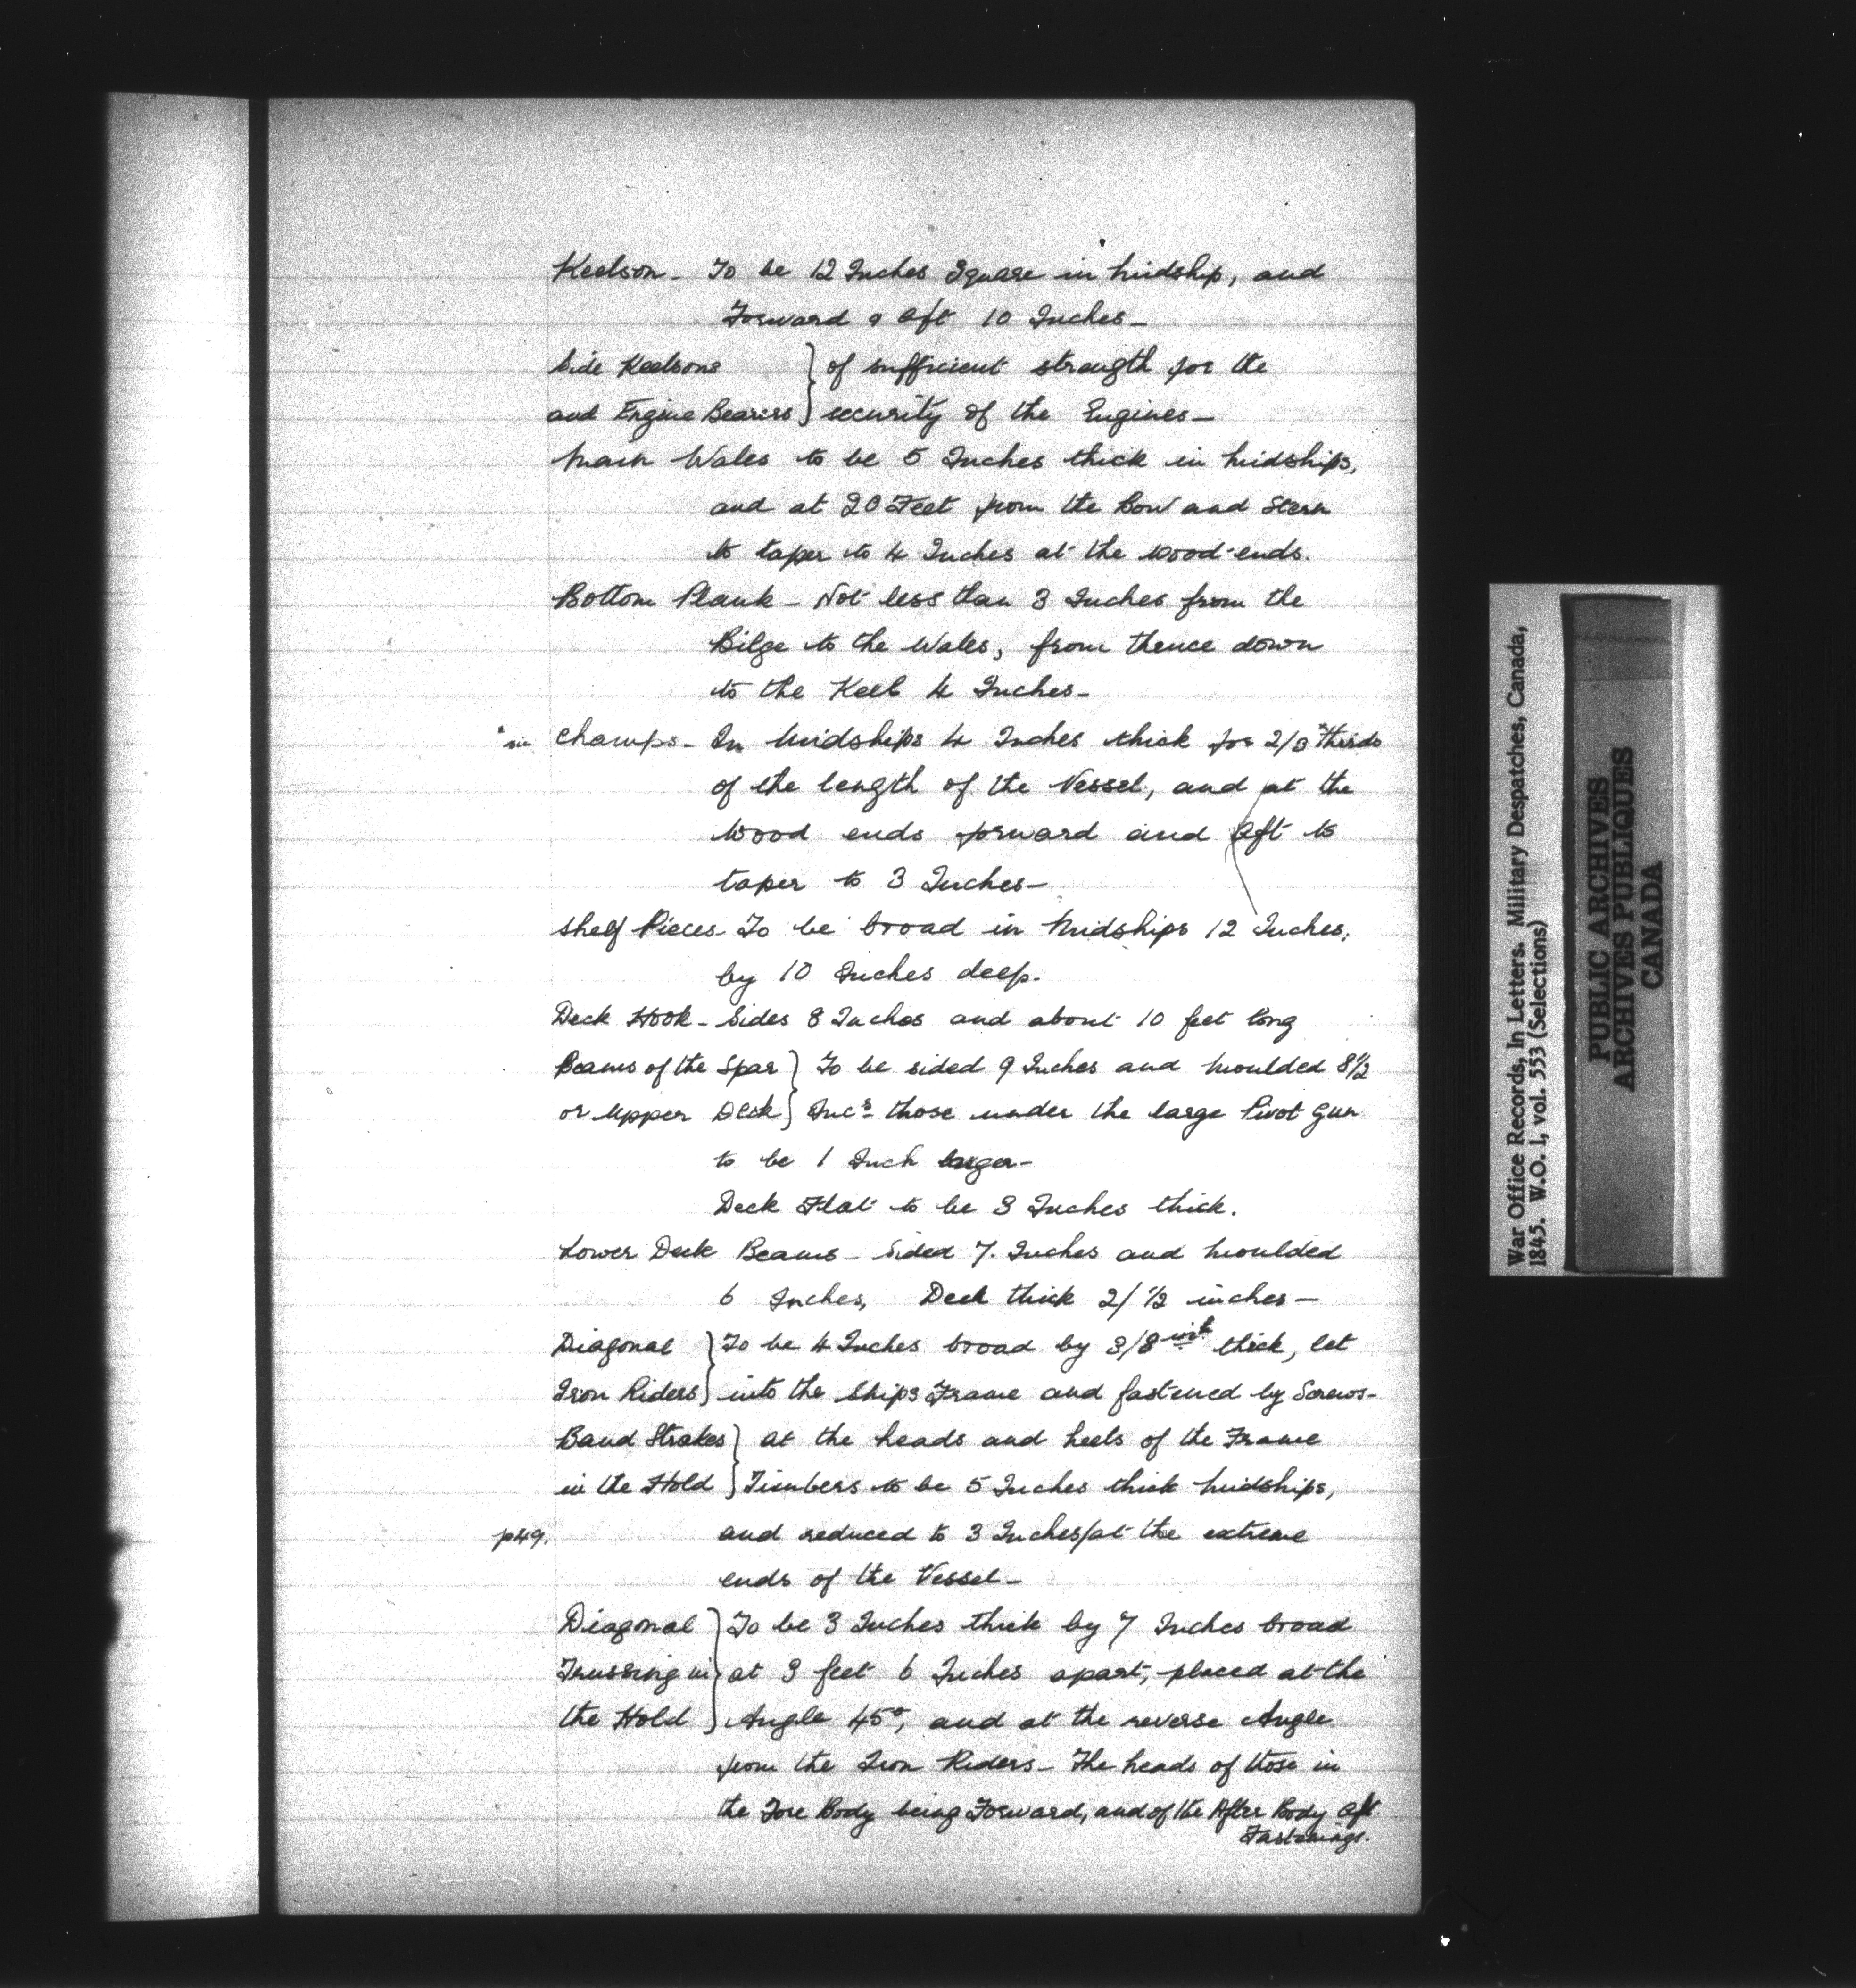 Keelson - To be 12 Inches Square in Midship, and
Forward & Aft 10 Inches -
Side Keelsons } of sufficient strength for the
and Engine Bearers } security of the Engines -
Main Wales to be 5 Inches thick in Midships,
and at 20 Feet from the Bow and Stern
to taper to 4 Inches at the wood-ends.
Bottom Plank - Not less than 3 Inches from the
Bilge to the Wales, from thence down
to the Keel 4 Inches -
Champs - In Midships 4 Inches thick for 2/3 * thirds
of the length of the Vessel, and at the
wood ends forward and Aft to
taper to 3 Inches -
Shelf Pieces - To be broad in Midships 12 Inches,
by 10 Inches deep.
Deck Hook - Sides 8 Inches and about 10 feet long
Beams of the Spar } To be sided 9 Inches and Moulded 8½
or Upper Deck } Incs those under the large Pivot Gun
to be 1 Inch larger -
Deck Flat to be 3 Inches thick.
Lower Deck Beams - Sided 7. Inches and Moulded
6 Inches, Deck thick 2/½ inches -
Diagonal } To be 4 Inches broad by 3/8 thick, let
Iron Riders } into the Ships Frame and fastened by Screws -
Band Strakes } at the heads and heels of the Frame
in the Hold } Timbers to be 5 Inches thick Midships,
p49. and reduced to 3 Inches/at the extreme
ends of the Vessel -
Diagonal } To be 3 Inches thick by 7 Inches broad
Trussing in } at 3 feet 6 Inches apart, placed at the
the Hold } Angle 45°, and at the reverse Angle
from the Iron Riders - The heads of those in
the Fore Body being Forward, and of the After Body Aft
Fastenings.
War Office Records, In Letters. Military Despatches, Canada,
1845. W.O. 1, vol. 553 (Selections)
PUBLIC ARCHIVES
ARCHIVES PUBLIQUES
CANADA